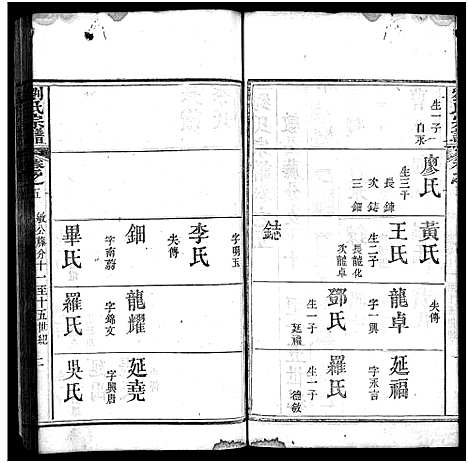 生一子
自永
廖氏
生三子
長鍊
次鋕
三鈿
黃氏
失傳
王氏
生二子
長龍化
次龍卓
鋕
龍卓
字一興
鄧氏
生一子
延福
延福
字永吉
羅氏
生一子
德敏
字明玉
李氏
失傳
鈿
字南蔚
畢氏
龍耀
字錦文
羅氏
延堯
字興唐
吳氏
劉氏宗譜
卷之五
敏公雁分十一至十五世紀